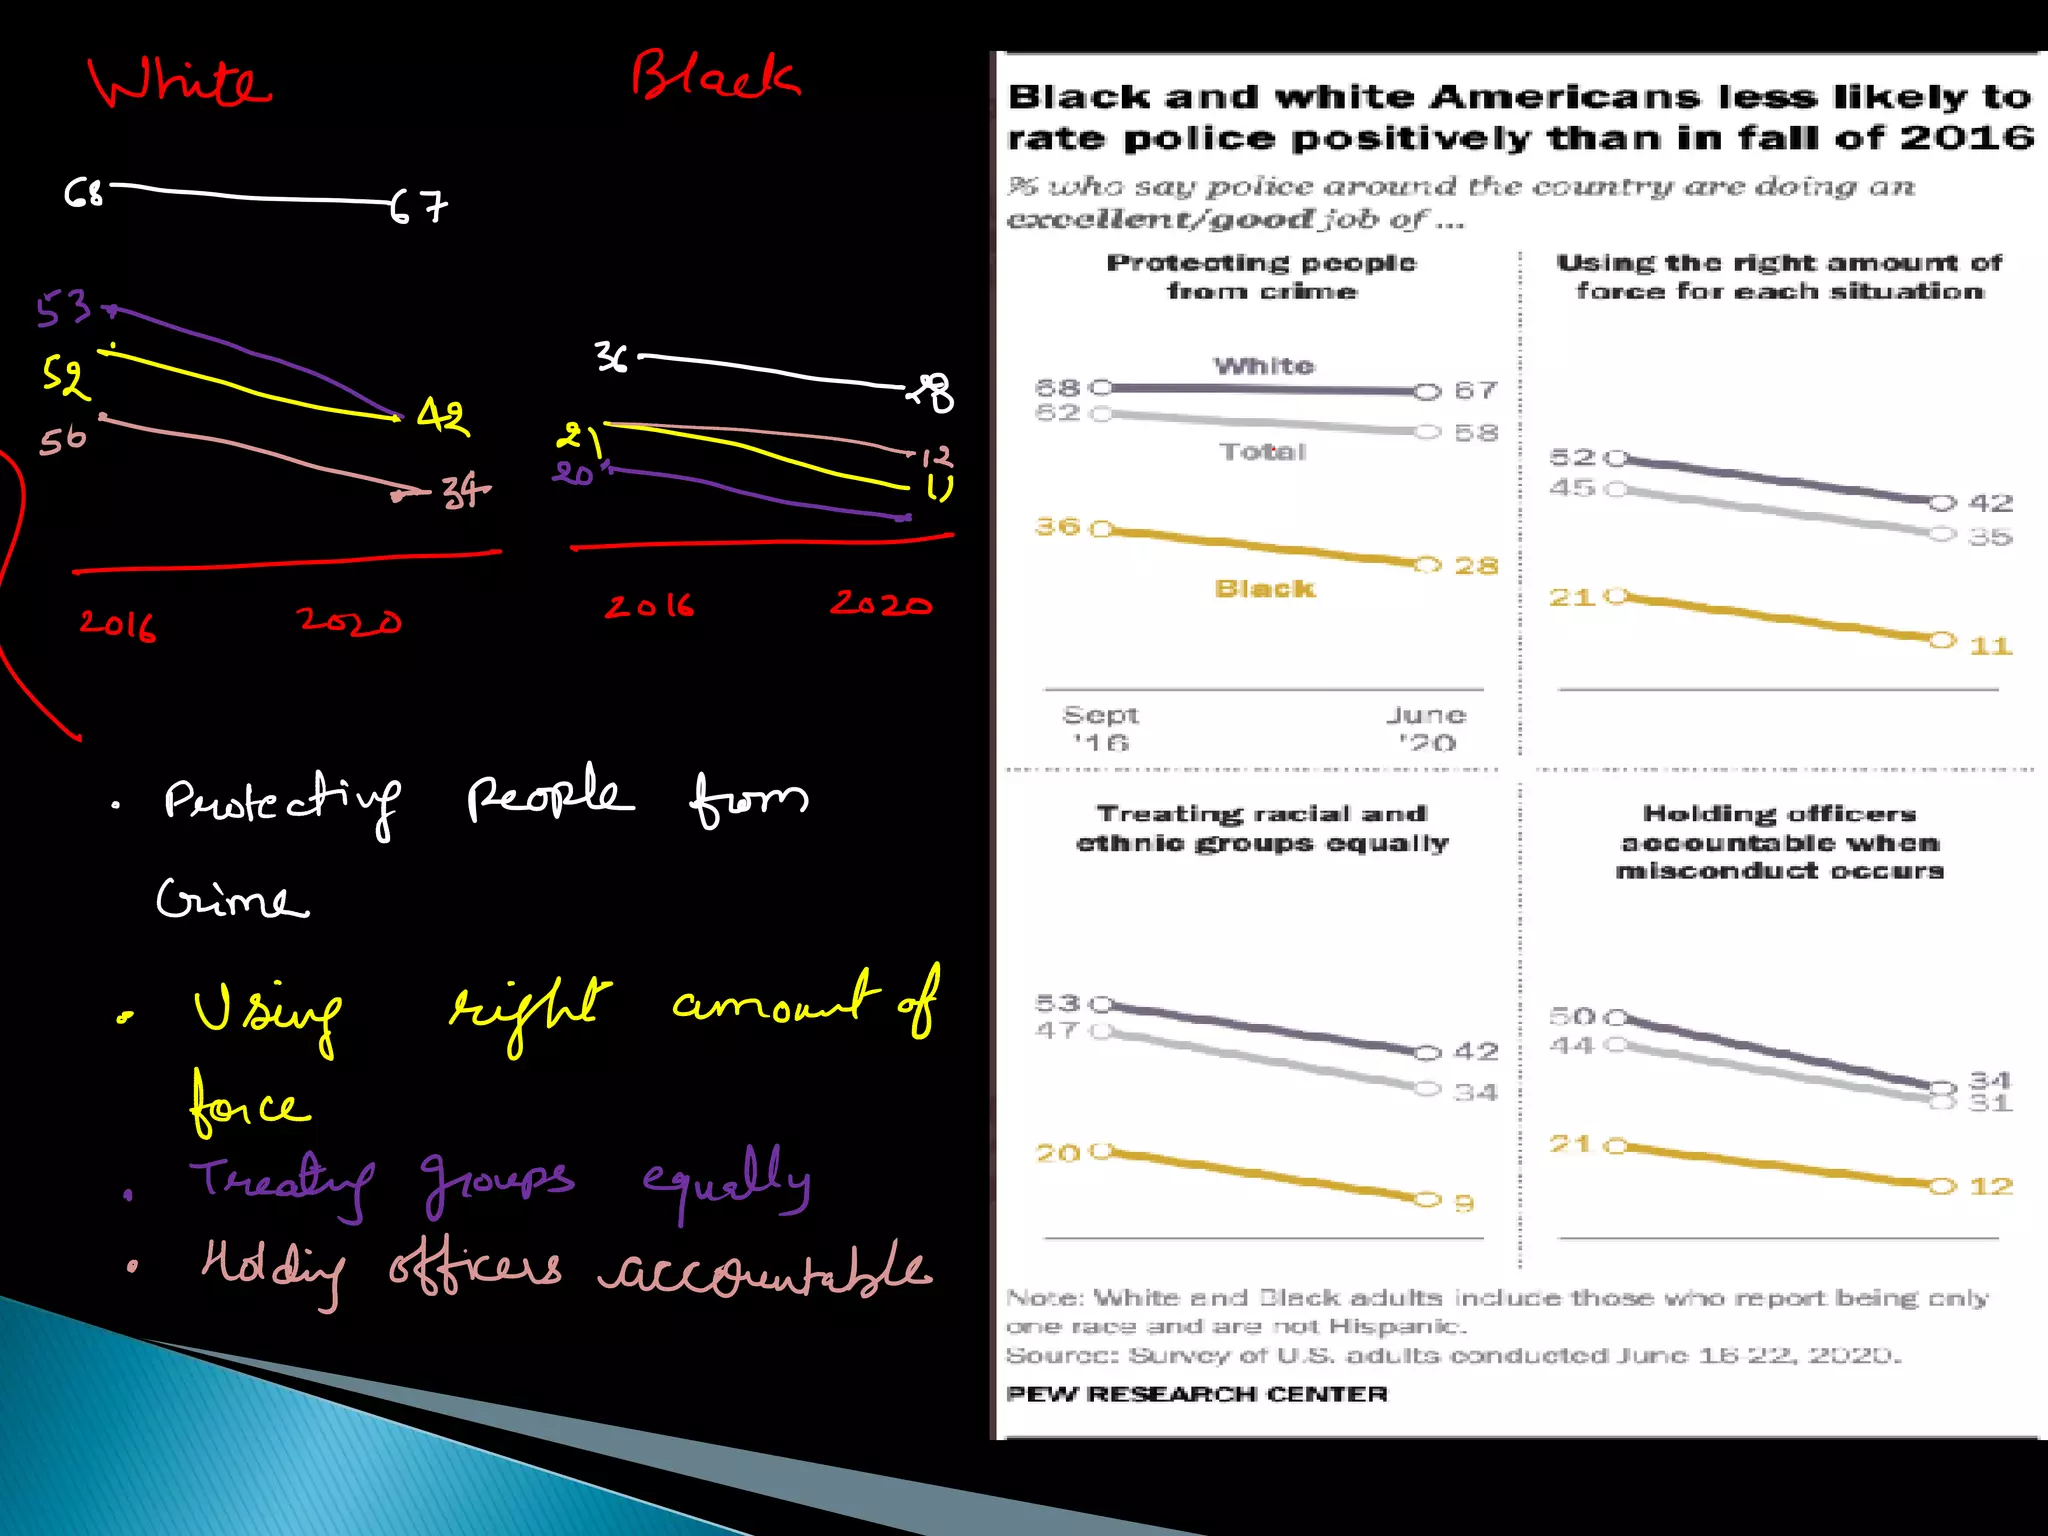 White
Black
68
67
53
52
42
50
34
36
28
21
12
11
20
2016
2020
2016
2020
. Protecting people from
Crime
. Using right amount of
force
. Treating groups equally
. Holding officers accountable
Black and white Americans less likely to
rate police positively than in fall of 2016
% who say police around the country are doing an
excellent/good job of ...
Protecting people
from crime
White
68
67
62
58
Total
36
28
Black
Sept
'16
June
'20
Using the right amount of
force for each situation
52
42
45
35
21
11
Treating racial and
ethnic groups equally
53
42
47
34
20
9
Holding officers
accountable when
misconduct occurs
50
34
44
31
21
12
Note: White and Black adults include those who report being only
one race and are not Hispanic.
Source: Survey of U.S. adults conducted June 16-22, 2020.
PEW RESEARCH CENTER